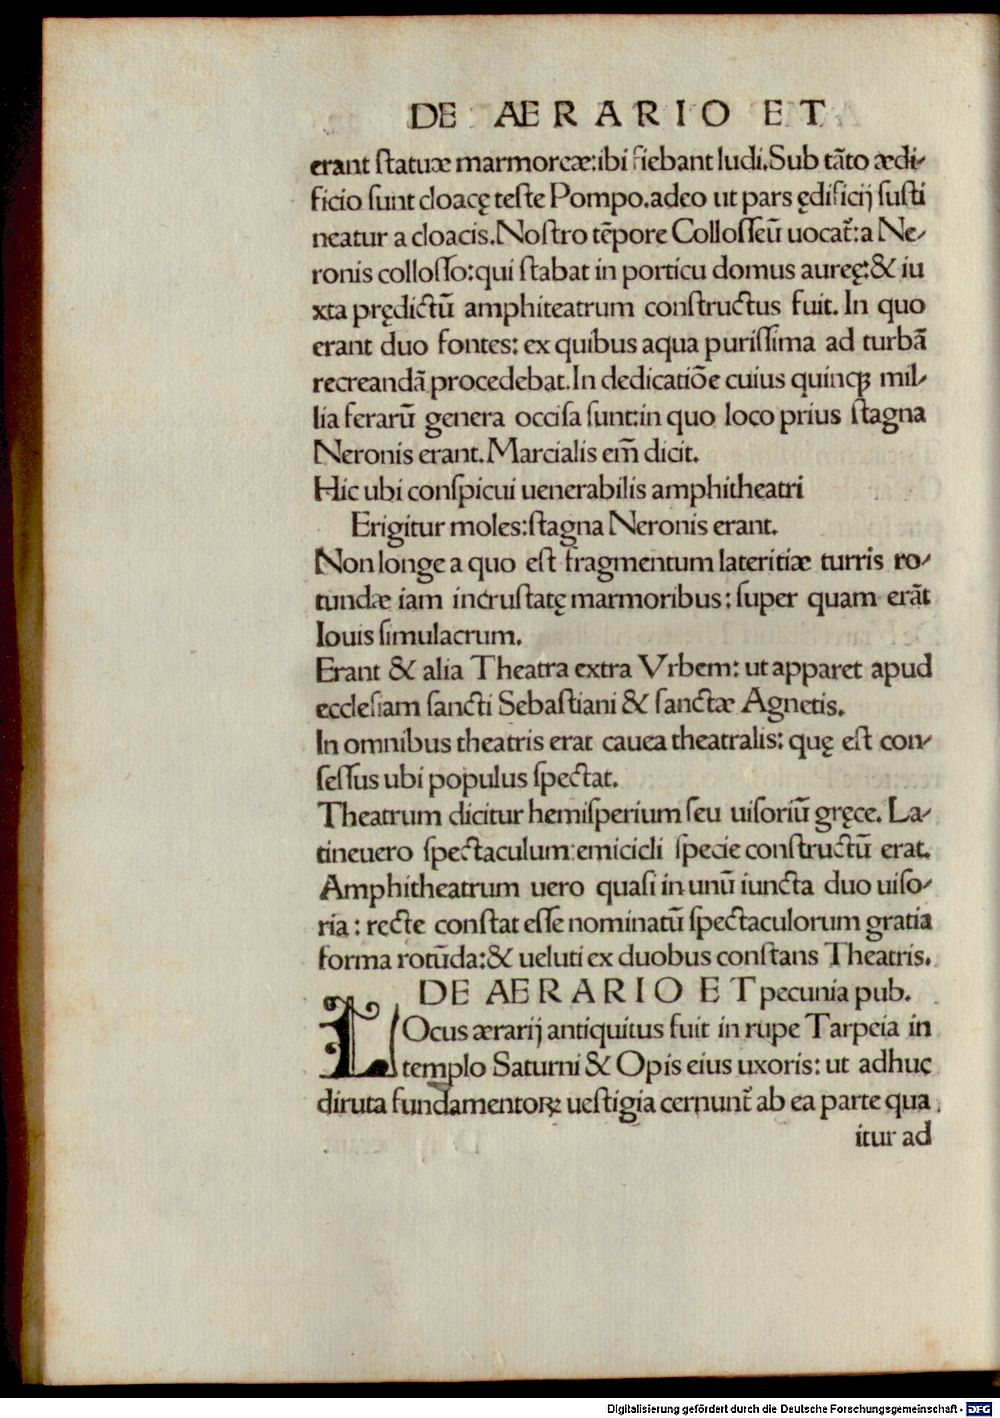 DE AERARIO ET
erant ſtatuæ marmoreæ:ibi fiebant ludi.Sub tãto ædi-
ficio ſunt cloacę teſte Pompo.adeo ut pars ędificij ſuſti
neatur a cloacis.Noſtro tẽpore Colloſſeũ uocat̃:a Ne-
ronis colloſſo:qui ſtabat in porticu domus aureę:& iu
xta prędictũ amphiteatrum conſtructus fuit. In quo
erant duo fontes: ex quibus aqua puriſſima ad turbã
recreandã procedebat.In dedicatiõe cuius quinqꝫ mil-
lia ferarũ genera occiſa ſunt:in quo loco prius ſtagna
Neronis erant.Marcialis em̃ dicit.
Hic ubi conſpicui uenerabilis amphitheatri
Erigitur moles:ſtagna Neronis erant.
Non longe a quo eſt fragmentum lateritiæ turris ro-
tundæ iam incruſtatę marmoribus: ſuper quam erãt
Iouis ſimulacrum.
Erant & alia Theatra extra Vrbem: ut apparet apud
eccleſiam ſancti Sebaſtiani & ſanctæ Agnetis.
In omnibus theatris erat cauea theatralis: quę eſt con-
ſeſſus ubi populus ſpectat.
Theatrum dicitur hemiſperium ſeu uiſoriũ gręce. La-
tineuero ſpectaculum:emicicli ſpecie conſtructũ erat.
Amphitheatrum uero quaſi in unũ iuncta duo uiſo-
ria: recte conſtat eſſe nominatũ ſpectaculorum gratia
forma rotũda:& ueluti ex duobus conſtans Theatris.
DE AERARIO ET pecunia pub.
LOcus ærarij antiquitus fuit in rupe Tarpeia in
templo Saturni & Opis eius uxoris: ut adhuc
diruta fundamentoꝝ ueſtigia cernunt̃ ab ea parte qua
itur ad
Digitalisierung gefördert durch die Deutsche Forschungsgemeinschaft - DFG